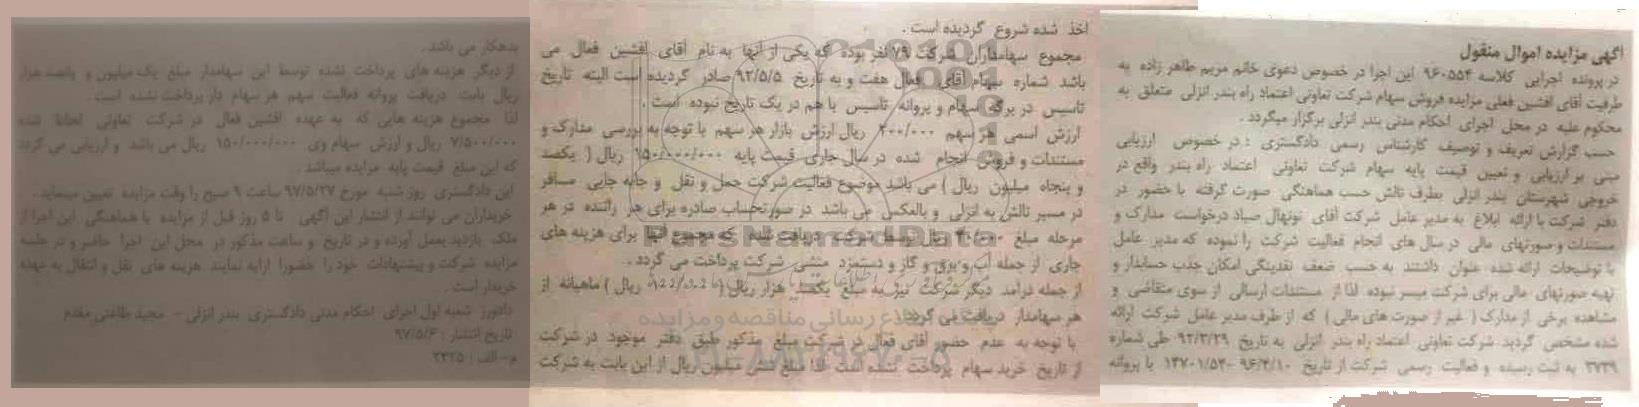 آگهی مزایده اموال منقول
در پرونده اجرایی کلاسه ۹۶۰۵۵۴ این اجرا در خصوص دعوی خانم مریم طاهر زاده به
طرفیت آقای افشین فعلی مزایده فروش سهام شرکت تعاونی اعتماد راه بندر انزلی متعلق به
محکوم علیه در محل اجرای احکام مدنی بندر انزلی برگزار میگردد .
حسب گزارش تعریف و توصیف کارشناس رسمی دادگستری : در خصوص ارزیابی
مبنی بر ارزیابی و تعیین قیمت پایه سهام شرکت تعاونی اعتماد راه بندر واقع در
خروجی شهرستان بندر انزلی بطرف تالش حسب هماهنگی صورت گرفته با حضور در
دفتر شرکت با ارائه ابلاغ به مدیر عامل شرکت آقای نونهال صیاد درخواست مدارک و
مستندات و صورتهای مالی در سال های انجام فعالیت شرکت را نموده که مدیر عامل
با توضیحات ارائه شده عنوان داشتند به حسب ضعف نقدینگی امکان جذب حسابدار و
تهیه صورتهای مالی برای شرکت میسر نبوده لذا از مستندات ارسالی از سوی متقاضی و
مشاهده برخی از مدارک ( غیر از صورت های مالی ) که از طرف مدیر عامل شرکت ارائه
شده مشخص گردید شرکت تعاونی اعتماد راه بندر انزلی به تاریخ ۹۲/۳/۲۹ طی شماره
۳۷۳۹ به ثبت رسیده و فعالیت رسمی شرکت از تاریخ ۹۶/۴/۱۰ -۱۳۷۰۱/۵۳ با پروانه
اخذ شده شروع گردیده است .
مجموع سهامداران شرکت ۷۹ نفر بوده که یکی از آنها به نام آقای افشین فعال می
باشد شماره سهام آقای فعال هفت و به تاریخ ۹۲/۵/۵ صادر گردیده است البته تاریخ
تاسیس در برگه سهام و پروانه تاسیس با هم در یک تاریخ نبوده است .
ارزش اسمی هر سهم ۴۰۰/۰۰۰ ریال ارزش بازار هر سهم با توجه به بررسی مدارک و
مستندات و فروش انجام شده در سال جاری قیمت پایه ۱۵۰/۰۰۰/۰۰۰ ریال ( یکصد
و پنجاه میلیون ریال ) می باشد موضوع فعالیت شرکت حمل و نقل و جابه جایی مسافر
در مسیر تالش به انزلی و بالعکس می باشد در صورتحساب صادره برای هر راننده در هر
مرحله مبلغ ریال توسط شرکت دریافت که مجموع برای هزینه های
جاری از جمله آب و برق و گاز و دستمزد منشی شرکت پرداخت می گردد .
از جمله درآمد دیگر شرکت نیز به مبلغ یکصد هزار ریال ( ریال ) ماهیانه از
هر سهامدار دریافت می گردد .
با توجه به عدم حضور آقای فعال در شرکت مبلغ مذکور طبق دفتر موجود در شرکت
از تاریخ خرید سهام پرداخت نشده است لذا مبلغ شش میلیون ریال از این بابت به شرکت
بدهکار می باشد .
از دیگر هزینه های پرداخت نشده توسط این سهامدار مبلغ یک میلیون و پانصد هزار
ریال بابت دریافت پروانه فعالیت سهم هر سهام دار پرداخت نشده است .
لذا مجموع هزینه هایی که به عهده افشین فعال در شرکت تعاونی لحاظ شده
۷/۵۰۰/۰۰۰ ریال و ارزش سهام وی ۱۵۰/۰۰۰/۰۰۰ ریال می باشد و ارزیابی می گردد
که این مبلغ قیمت پایه مزایده میباشد .
این دادگستری روز شنبه مورخ ۹۷/۵/۲۷ ساعت ۹ صبح را وقت مزایده تعیین مینماید .
خریداران می توانند از انتشار این آگهی تا ۵ روز قبل از مزایده با هماهنگی این اجرا از
ملک بازدید بعمل آورده و در تاریخ و ساعت مذکور در محل این اجرا حاضر و در جلسه
مزایده شرکت و پیشنهادات خود را حضورا ارایه نمایند. هزینه های نقل و انتقال به عهده
خریدار است .
دادورز شعبه اول اجرای احکام مدنی دادگستری بندر انزلی - مجید طاعتی مقدم
تاریخ انتشار : ۹۷/۵/۶
م- الف : ۲۳۲۵
ParsNamadData
پایگاه اطلاع رسانی مناقصه و مزایده
۰۲۱-۸۸۳۴۹۶۷۰-۵